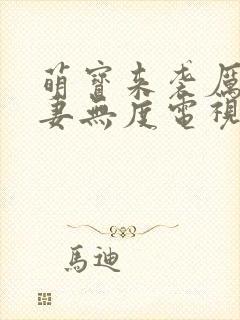 萌寶來袭厲
妻無度電視
馬迪